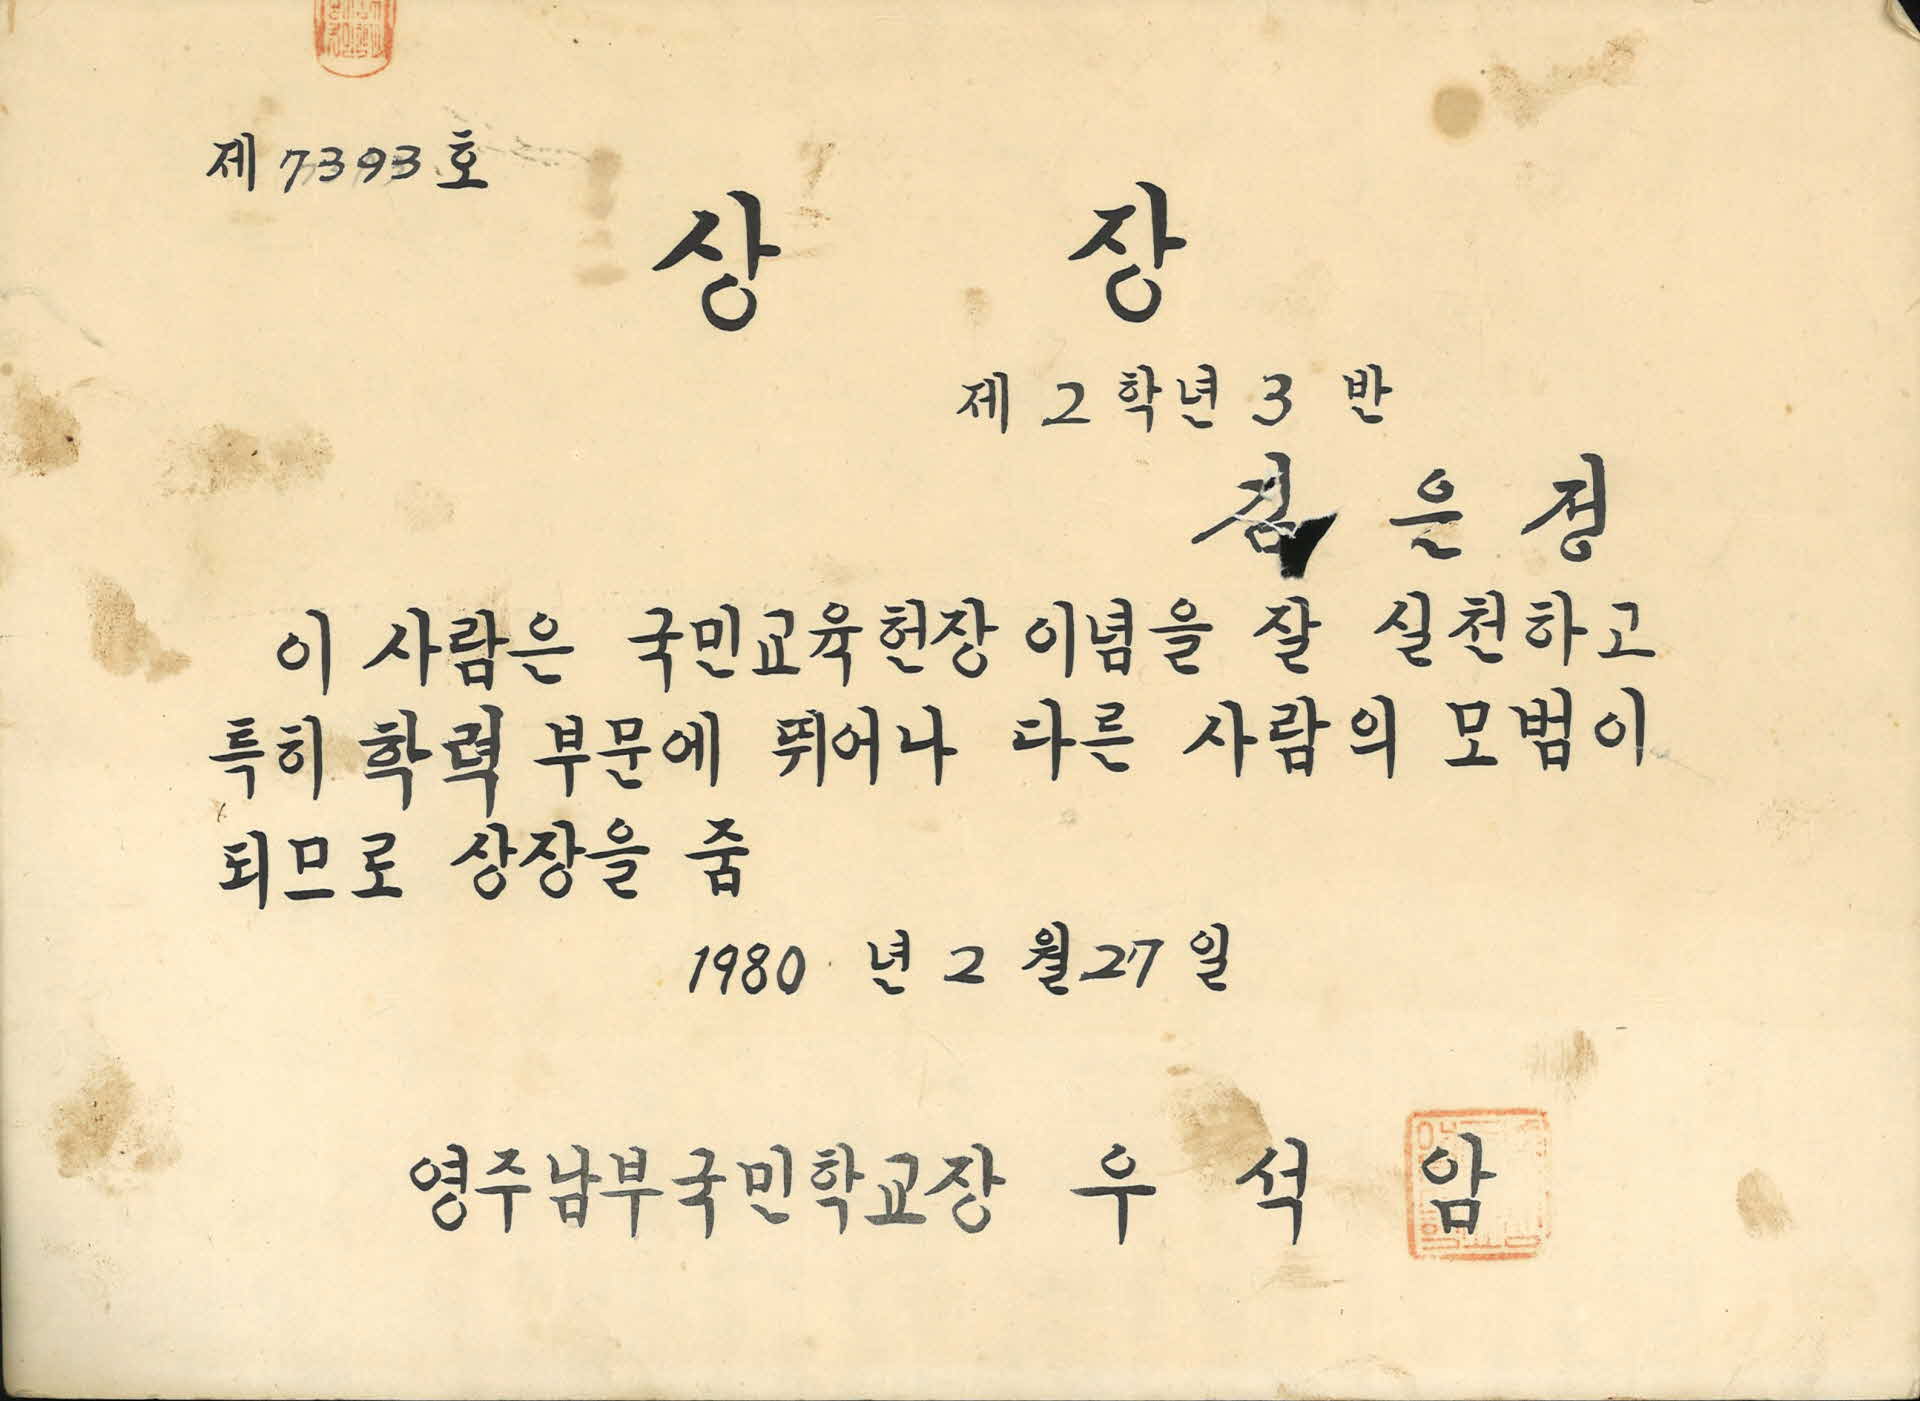 제 7393 호
상 장
제 2 학년 3 반
김 은 정
이 사람은 국민교육헌장 이념을 잘 실천하고
특히 학력 부문에 뛰어나 다른 사람의 모범이
되므로 상장을 줌
1980 년 2 월 27 일
영주남부국민학교장 우 석 암